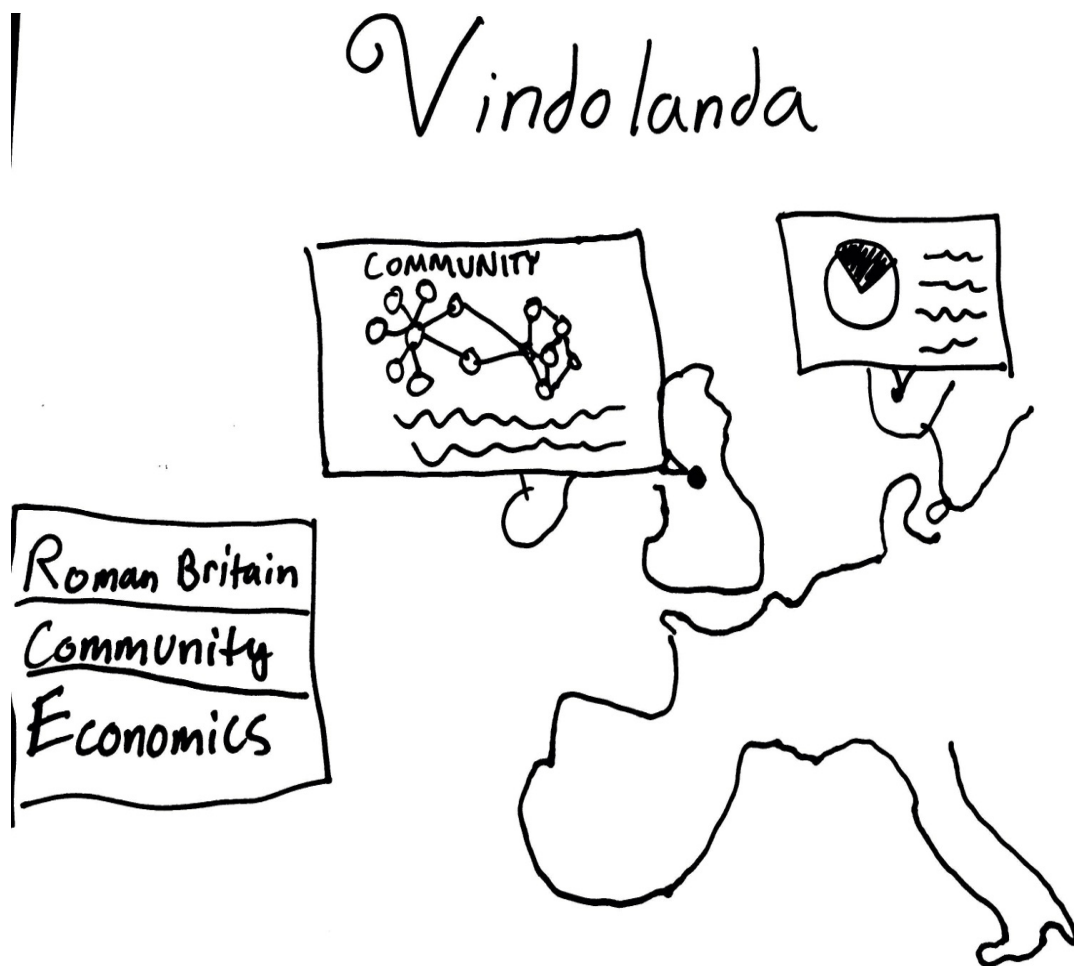 Vindolanda
COMMUNITY
Roman Britain
Community
Economics